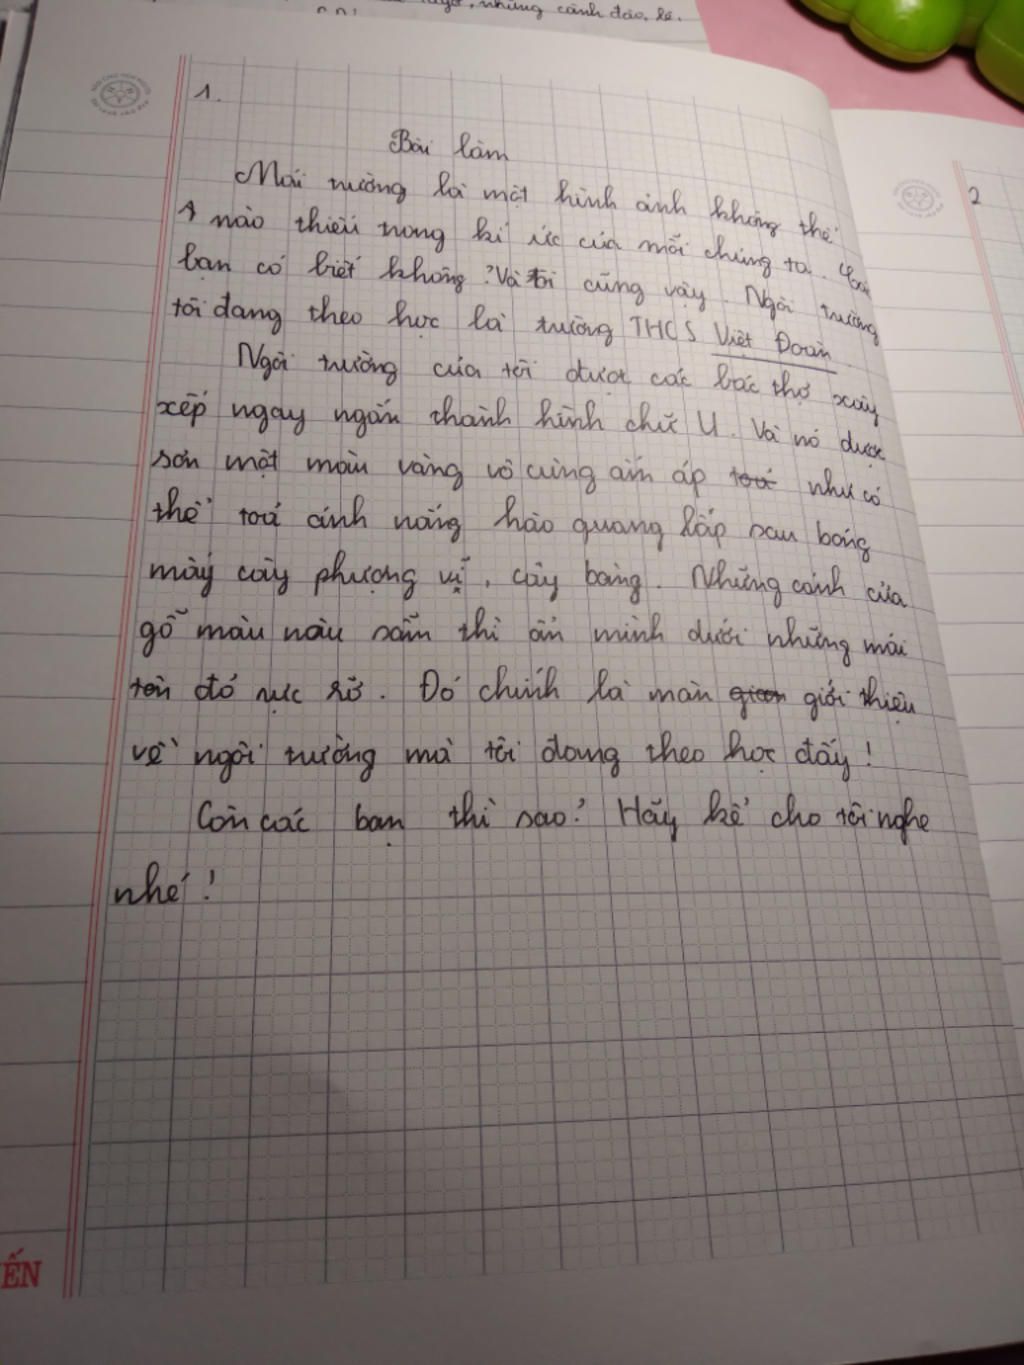 những cánh đào, lê.
1.
Bài làm
Mái trường là một hình ảnh không thể
nào thiếu trong kí ức của mỗi chúng ta. Các
bạn có biết không? Và tôi cũng vậy. Ngôi trường
tôi đang theo học là trường THCS Việt Đoàn.
Ngôi trường của tôi được các bác thợ xây
xếp ngay ngắn thành hình chữ U. Và nó được
sơn một màu vàng vô cùng ấm áp toả như có
thể toả ánh nắng hào quang lấp sau bóng
mấy cây phượng vĩ, cây bàng. Những cánh cửa
gỗ màu nâu sẫm thì ẩn mình dưới những mái
tôn đỏ rực rỡ. Đó chính là màn giới thiệu
về ngôi trường mà tôi đang theo học đấy!
Còn các bạn thì sao? Hãy kể cho tôi nghe
nhé!
2
ẾN